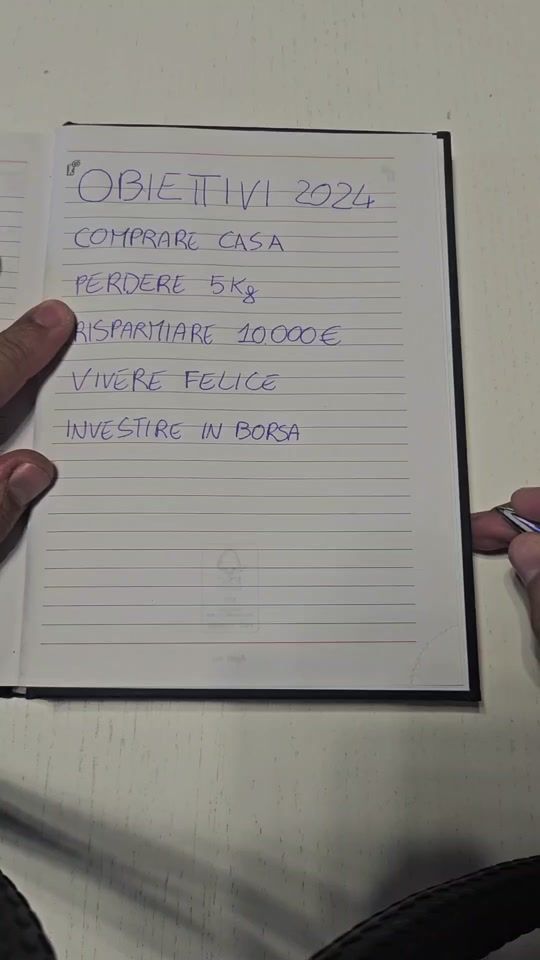 OBIETTIVI 2024
COMPRARE CASA
PERDERE 5Kg
RISPARMIARE 10.000€
VIVERE FELICE
INVESTIRE IN BORSA